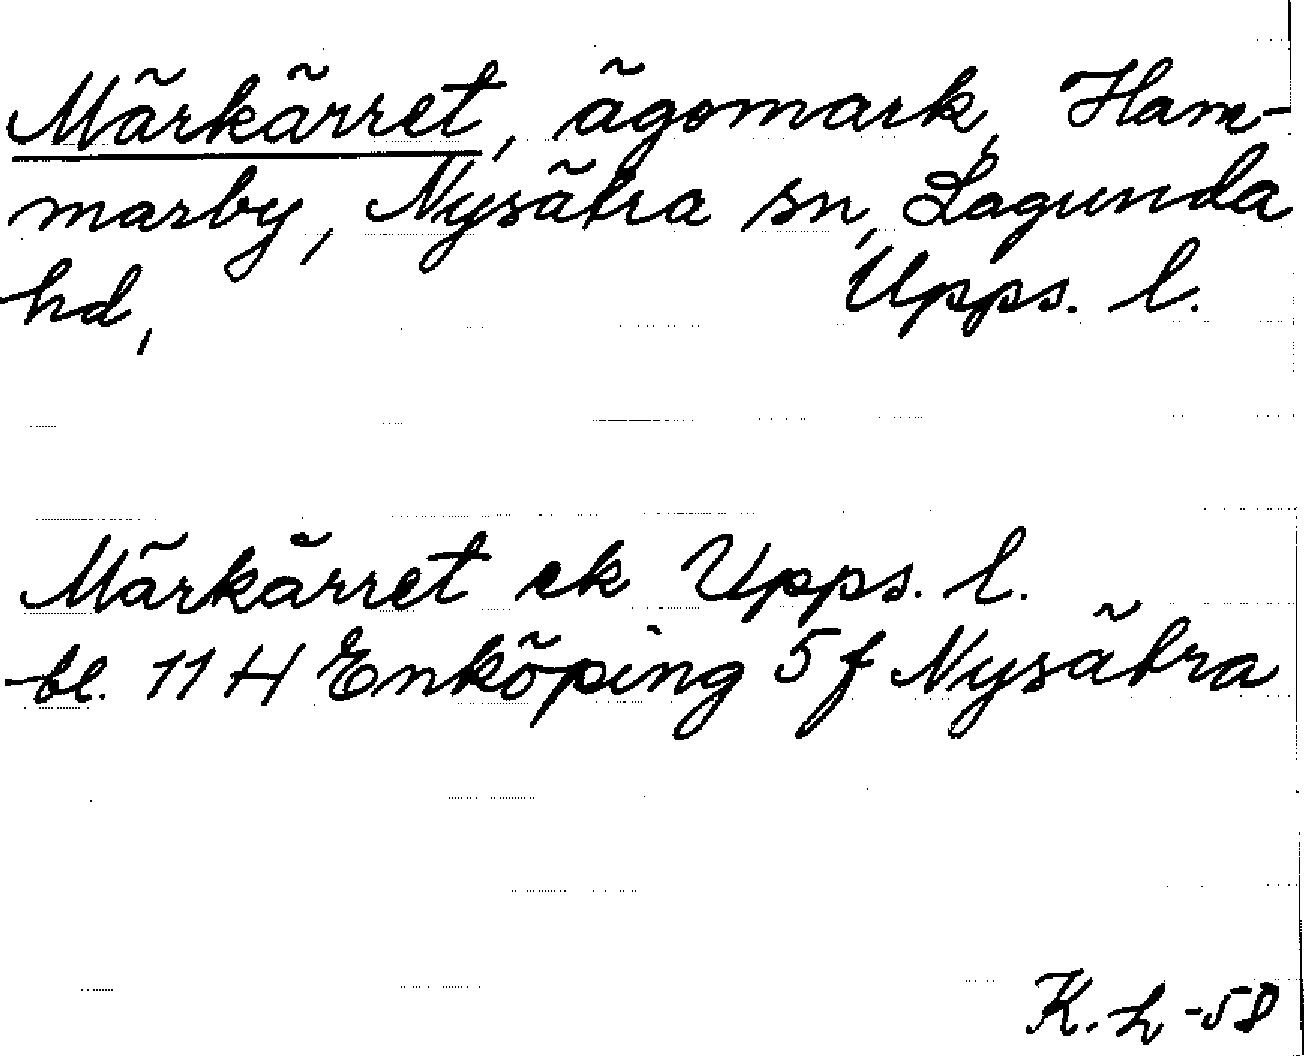 Märkärret, ägomark, Ham-
marby, Nysätra sn, Lagunda
hd, Upps. l.
Märkärret ek Upps. l.
bl. 11 H Enköping 5 f Nysätra
K. L -58